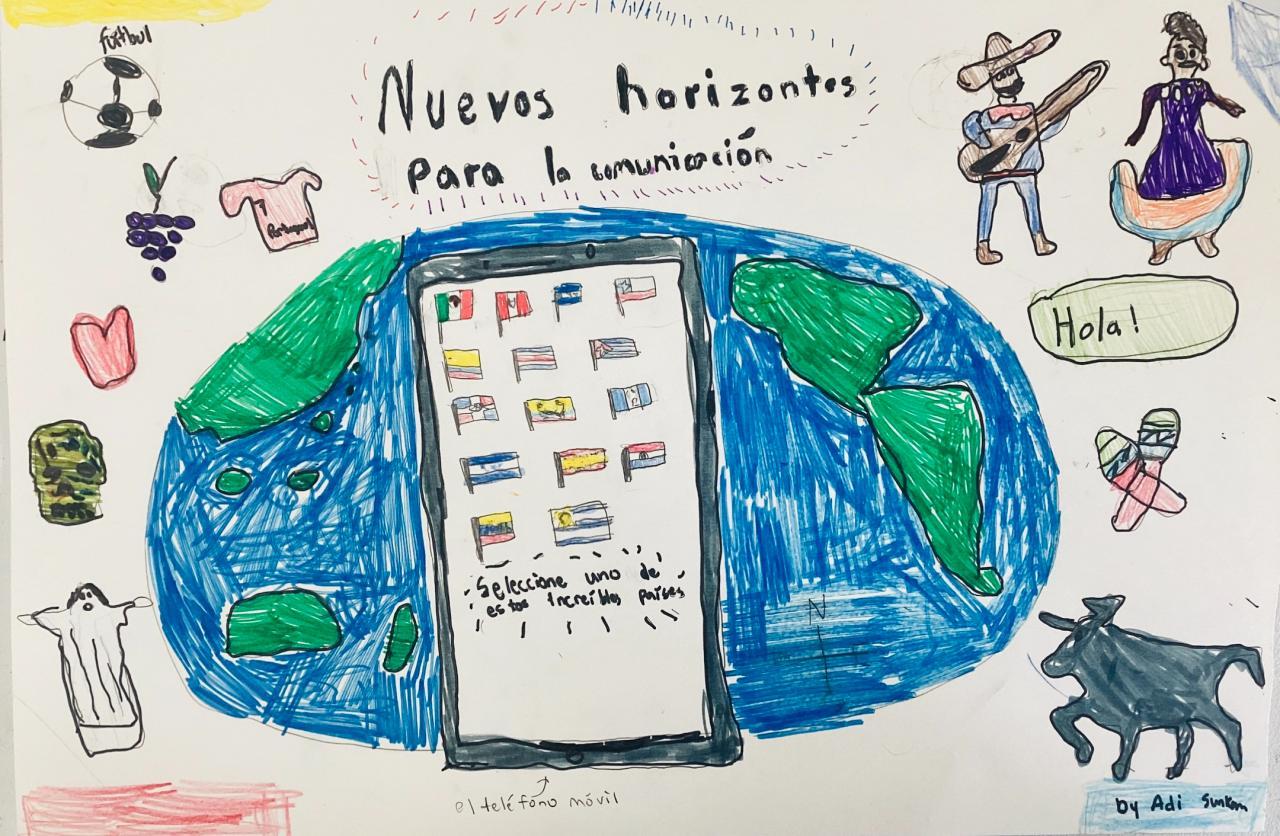 fútbul
Nuevos horizontes
para la comunicación
Portugal
Hola!
Seleccione uno de
estos increíbles países
el teléfono móvil
by Adi